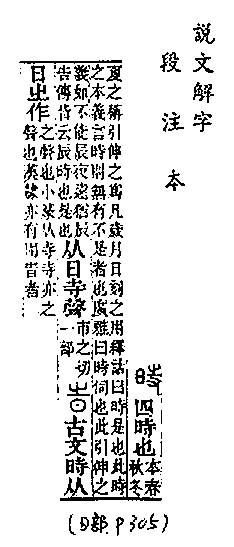 說文解字
段注本
時 四時也 本春
秋冬
夏之稱引伸之爲凡歲月日刻之用釋詁曰時是也此時
之本義言時則無有不是者也廣雅曰時伺也此引伸之
義如不能辰夜遠猶辰
告傳皆云辰時也是也 从日寺聲 市之切
一部 旹 古文時从
日㞢作 㞢聲也小篆从寺寺亦㞢
聲也漢隸亦有用旹者
(日部.P305)